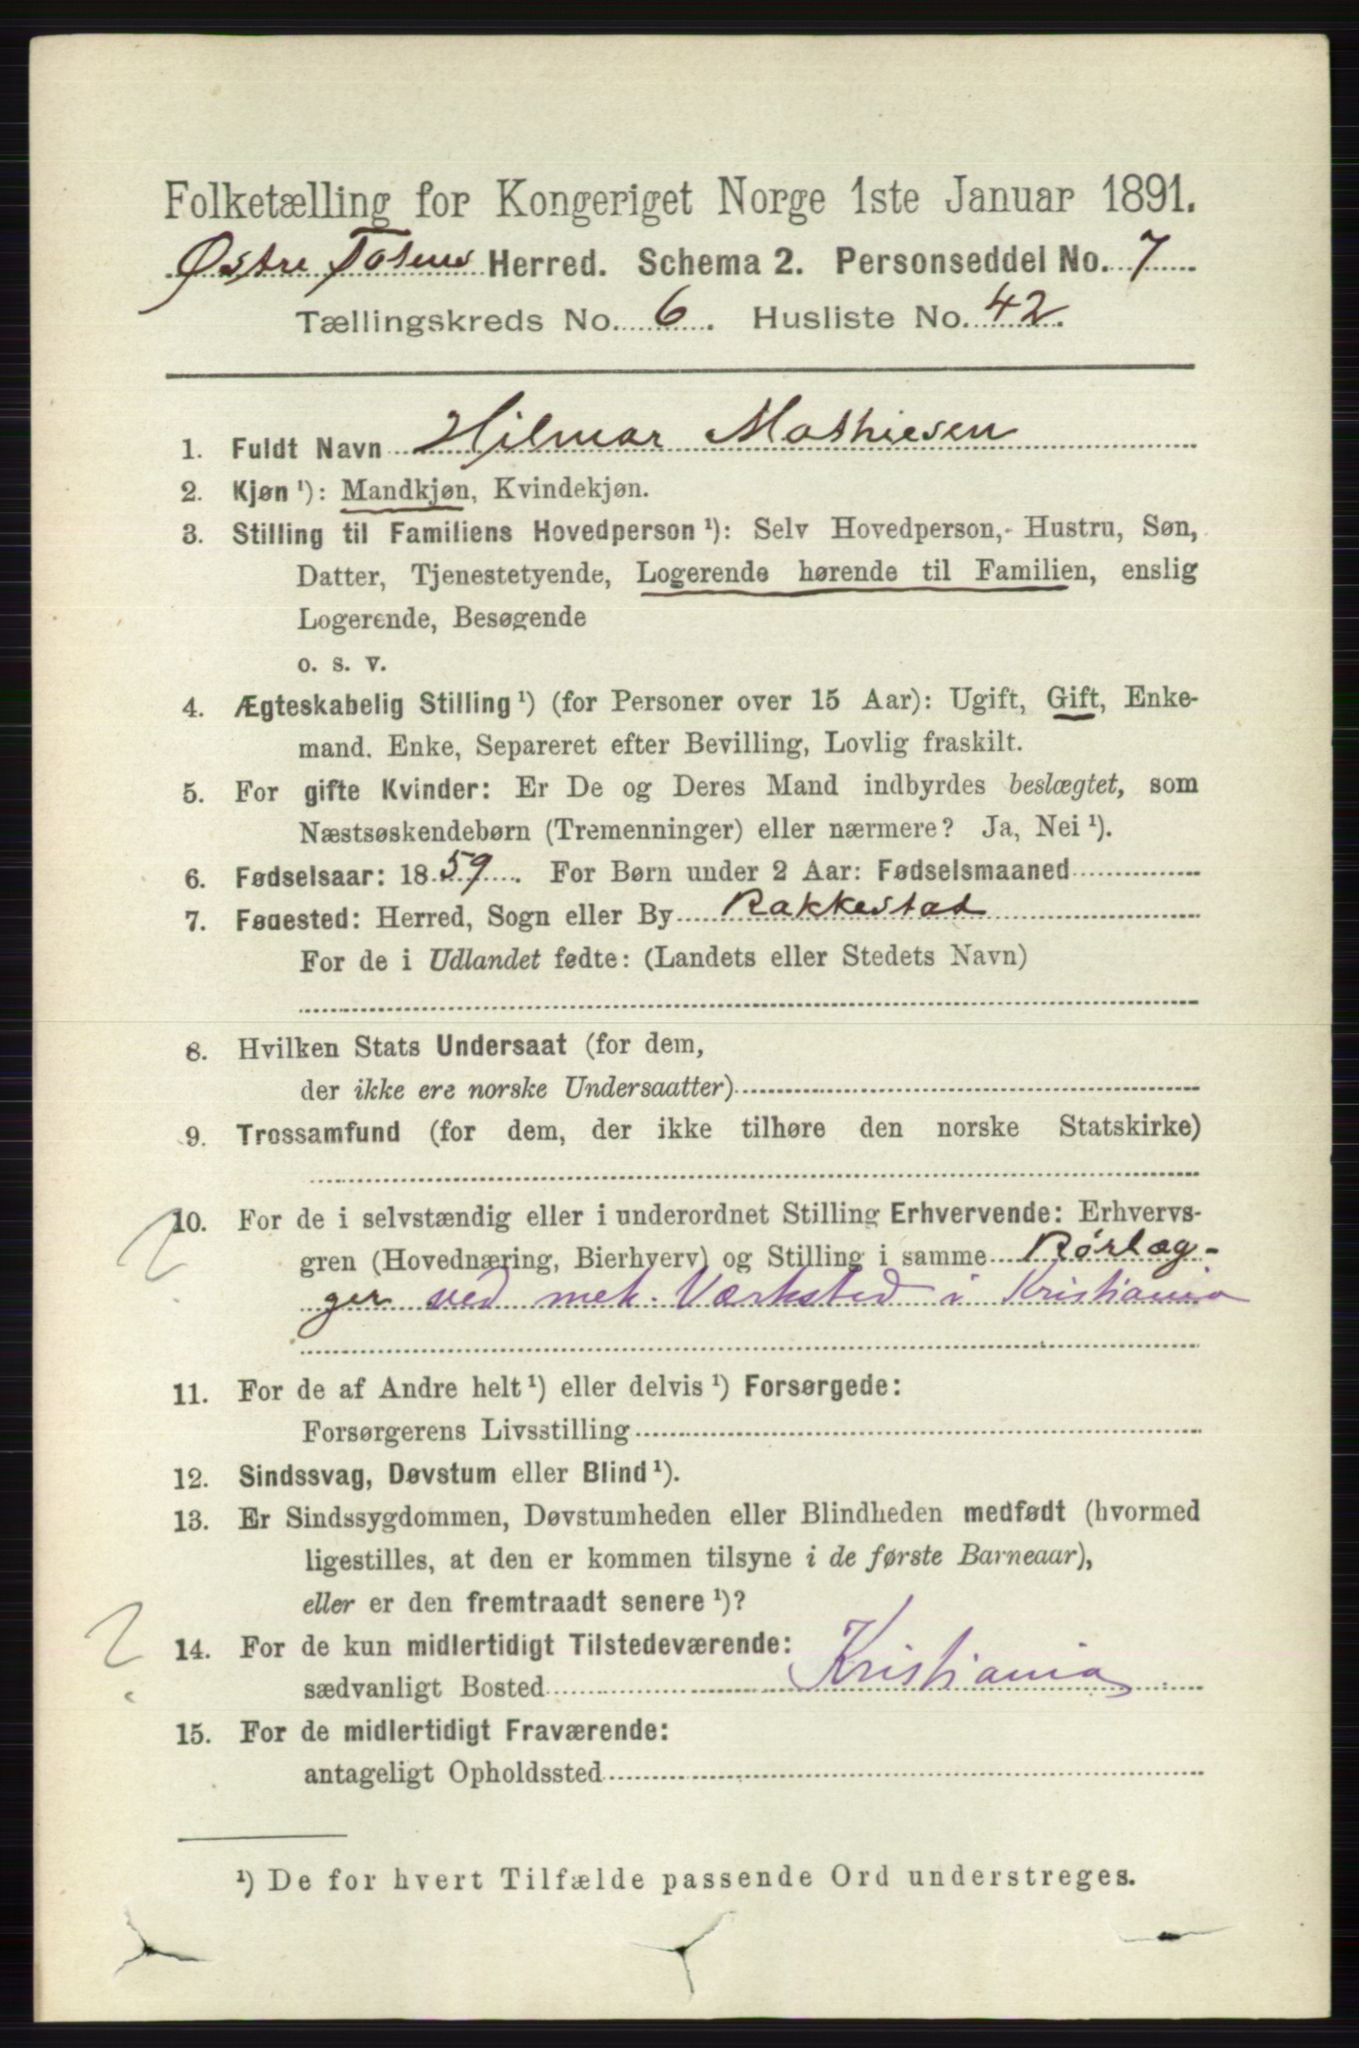 Folketælling for Kongeriget Norge 1ste Januar 1891.
Østre Totens Herred. Schema 2. Personseddel No. 7
Tællingskreds No. 6. Husliste No. 42.
1. Fuldt Navn Hilmar Mathiesen
2. Kjøn¹): Mandkjøn, Kvindekjøn.
3. Stilling til Familiens Hovedperson¹): Selv Hovedperson, Hustru, Søn,
Datter, Tjenestetyende, Logerende hørende til Familien, enslig
Logerende, Besøgende
o. s. v.
4. Ægteskabelig Stilling¹) (for Personer over 15 Aar): Ugift, Gift, Enke-
mand. Enke, Separeret efter Bevilling, Lovlig fraskilt.
5. For gifte Kvinder: Er De og Deres Mand indbyrdes beslægtet, som
Næstsøskendebørn (Tremenninger) eller nærmere? Ja, Nei¹).
6. Fødselsaar: 1859. For Børn under 2 Aar: Fødselsmaaned
7. Fødested: Herred, Sogn eller By Rakkestad
For de i Udlandet fødte: (Landets eller Stedets Navn)
8. Hvilken Stats Undersaat (for dem,
der ikke ere norske Undersaatter)
9. Trossamfund (for dem, der ikke tilhøre den norske Statskirke)
10. For de i selvstændig eller i underordnet Stilling Erhvervende: Erhvervs-
gren (Hovednæring, Bierhverv) og Stilling i samme Rørlæg-
ger ved mek. Værksted i Kristiania
11. For de af Andre helt¹) eller delvis¹) Forsørgede:
Forsørgerens Livsstilling
12. Sindssvag, Døvstum eller Blind¹).
13. Er Sindssygdommen, Døvstumheden eller Blindheden medfødt (hvormed
ligestilles, at den er kommen tilsyne i de første Barneaar),
eller er den fremtraadt senere¹)?
14. For de kun midlertidigt Tilstedeværende:
sædvanligt Bosted Kristiania
15. For de midlertidigt Fraværende:
antageligt Opholdssted
¹) De for hvert Tilfælde passende Ord understreges.